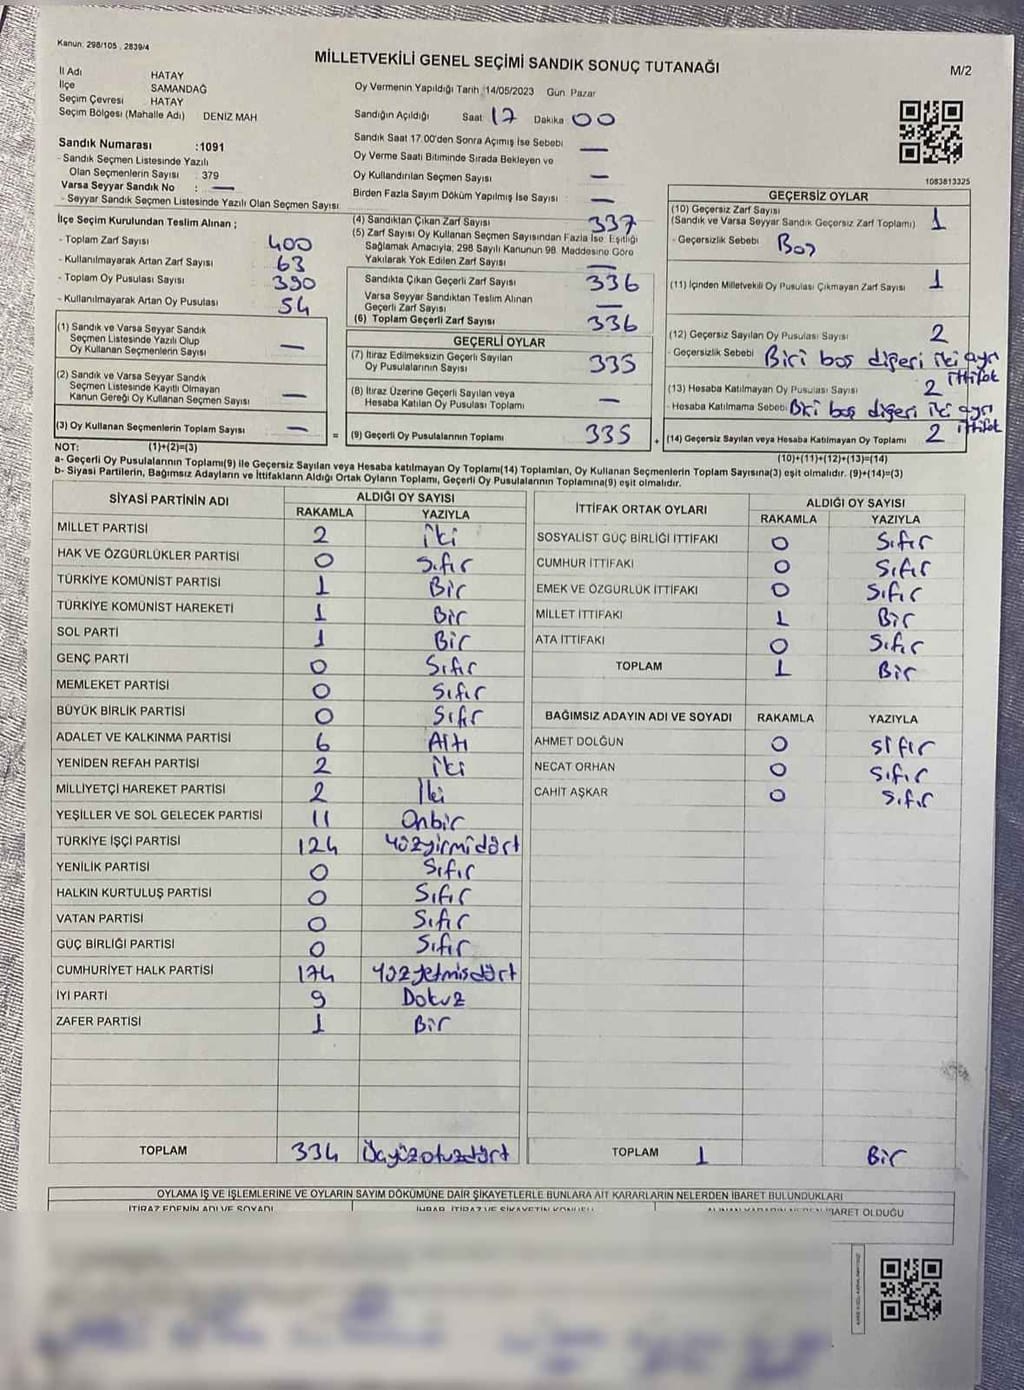 Kanun: 298/105 , 2839/4
MİLLETVEKİLİ GENEL SEÇİMİ SANDIK SONUÇ TUTANAĞI
M/2
İl Adı HATAY
İlçe SAMANDAĞ
Seçim Çevresi HATAY
Seçim Bölgesi (Mahalle Adı) DENİZ MAH
Sandık Numarası :1091
- Sandık Seçmen Listesinde Yazılı
Olan Seçmenlerin Sayısı : 379
Varsa Seyyar Sandık No : —
- Seyyar Sandık Seçmen Listesinde Yazılı Olan Seçmen Sayısı
Oy Vermenin Yapıldığı Tarih :14/05/2023 Gün: Pazar
Sandığın Açıldığı Saat 17 Dakika 00
Sandık Saat 17.00'den Sonra Açımış İse Sebebi —
Oy Verme Saati Bitiminde Sırada Bekleyen ve
Oy Kullandırılan Seçmen Sayısı —
Birden Fazla Sayım Döküm Yapılmış İse Sayısı —
1083813325
İlçe Seçim Kurulundan Teslim Alınan ;
- Toplam Zarf Sayısı 400
- Kullanılmayarak Artan Zarf Sayısı 63
- Toplam Oy Pusulası Sayısı 390
- Kullanılmayarak Artan Oy Pusulası 54
(1) Sandık ve Varsa Seyyar Sandık
Seçmen Listesinde Yazılı Olup
Oy Kullanan Seçmenlerin Sayısı —
(2) Sandık ve Varsa Seyyar Sandık
Seçmen Listesinde Kayıtlı Olmayan
Kanun Gereği Oy Kullanan Seçmen Sayısı —
(3) Oy Kullanan Seçmenlerin Toplam Sayısı —
(4) Sandıktan Çıkan Zarf Sayısı 337
(5) Zarf Sayısı Oy Kullanan Seçmen Sayısından Fazla İse, Eşitliği
Sağlamak Amacıyla, 298 Sayılı Kanunun 98. Maddesine Göre
Yakılarak Yok Edilen Zarf Sayısı —
Sandıkta Çıkan Geçerli Zarf Sayısı 336
Varsa Seyyar Sandıktan Teslim Alınan
Geçerli Zarf Sayısı —
(6) Toplam Geçerli Zarf Sayısı 336
GEÇERLİ OYLAR
(7) İtiraz Edilmeksizin Geçerli Sayılan
Oy Pusulalarının Sayısı 335
(8) İtiraz Üzerine Geçerli Sayılan veya
Hesaba Katılan Oy Pusulası Toplamı —
= (9) Geçerli Oy Pusulalarının Toplamı 335 +
GEÇERSİZ OYLAR
(10) Geçersiz Zarf Sayısı
(Sandık ve Varsa Seyyar Sandık Geçersiz Zarf Toplamı) 1
- Geçersizlik Sebebi Boş
(11) İçinden Milletvekili Oy Pusulası Çıkmayan Zarf Sayısı 1
(12) Geçersiz Sayılan Oy Pusulası Sayısı 2
- Geçersizlik Sebebi Biri boş diğeri iki ayrı ittifak
(13) Hesaba Katılmayan Oy Pusulası Sayısı 2
- Hesaba Katılmama Sebebi boş diğeri iki ayrı ittifak
(14) Geçersiz Sayılan veya Hesaba Katılmayan Oy Toplamı 2
NOT: (1)+(2)=(3)
(10)+(11)+(12)+(13)=(14)
a- Geçerli Oy Pusulalarının Toplamı(9) ile Geçersiz Sayılan veya Hesaba katılmayan Oy Toplamı(14) Toplamları, Oy Kullanan Seçmenlerin Toplam Sayısına(3) eşit olmalıdır. (9)+(14)=(3)
b- Siyasi Partilerin, Bağımsız Adayların ve İttifakların Aldığı Ortak Oyların Toplamı, Geçerli Oy Pusulalarının Toplamına(9) eşit olmalıdır.
SİYASİ PARTİNİN ADI ALDIĞI OY SAYISI
RAKAMLA YAZIYLA
MİLLET PARTİSİ 2 iki
HAK VE ÖZGÜRLÜKLER PARTİSİ 0 Sıfır
TÜRKİYE KOMÜNİST PARTİSİ 1 Bir
TÜRKİYE KOMÜNİST HAREKETİ 1 Bir
SOL PARTİ 1 Bir
GENÇ PARTİ 0 Sıfır
MEMLEKET PARTİSİ 0 Sıfır
BÜYÜK BİRLİK PARTİSİ 0 Sıfır
ADALET VE KALKINMA PARTİSİ 6 Altı
YENİDEN REFAH PARTİSİ 2 iki
MİLLİYETÇİ HAREKET PARTİSİ 2 İki
YEŞİLLER VE SOL GELECEK PARTİSİ 11 Onbir
TÜRKİYE İŞÇİ PARTİSİ 124 Yüzyirmidört
YENİLİK PARTİSİ 0 Sıfır
HALKIN KURTULUŞ PARTİSİ 0 Sıfır
VATAN PARTİSİ 0 Sıfır
GÜÇ BİRLİĞİ PARTİSİ 0 Sıfır
CUMHURİYET HALK PARTİSİ 174 Yüzyetmisdört
İYİ PARTİ 9 Dokuz
ZAFER PARTİSİ 1 Bir
TOPLAM 334 Üçyüzotuzdört
İTTİFAK ORTAK OYLARI ALDIĞI OY SAYISI
RAKAMLA YAZIYLA
SOSYALİST GÜÇ BİRLİĞİ İTTİFAKI 0 Sıfır
CUMHUR İTTİFAKI 0 Sıfır
EMEK VE ÖZGÜRLÜK İTTİFAKI 0 Sıfır
MİLLET İTTİFAKI 1 Bir
ATA İTTİFAKI 0 Sıfır
TOPLAM 1 Bir
BAĞIMSIZ ADAYIN ADI VE SOYADI RAKAMLA YAZIYLA
AHMET DOLĞUN 0 sıfır
NECAT ORHAN 0 Sıfır
CAHİT AŞKAR 0 Sıfır
TOPLAM 1 Bir
OYLAMA İŞ VE İŞLEMLERİNE VE OYLARIN SAYIM DÖKÜMÜNE DAİR ŞİKAYETLERLE BUNLARA AİT KARARLARIN NELERDEN İBARET BULUNDUKLARI
İTİRAZ EDENİN ADI VE SOYADI İHBAR, İTİRAZ VE ŞİKAYETİN KONUSU İBARET OLDUĞU